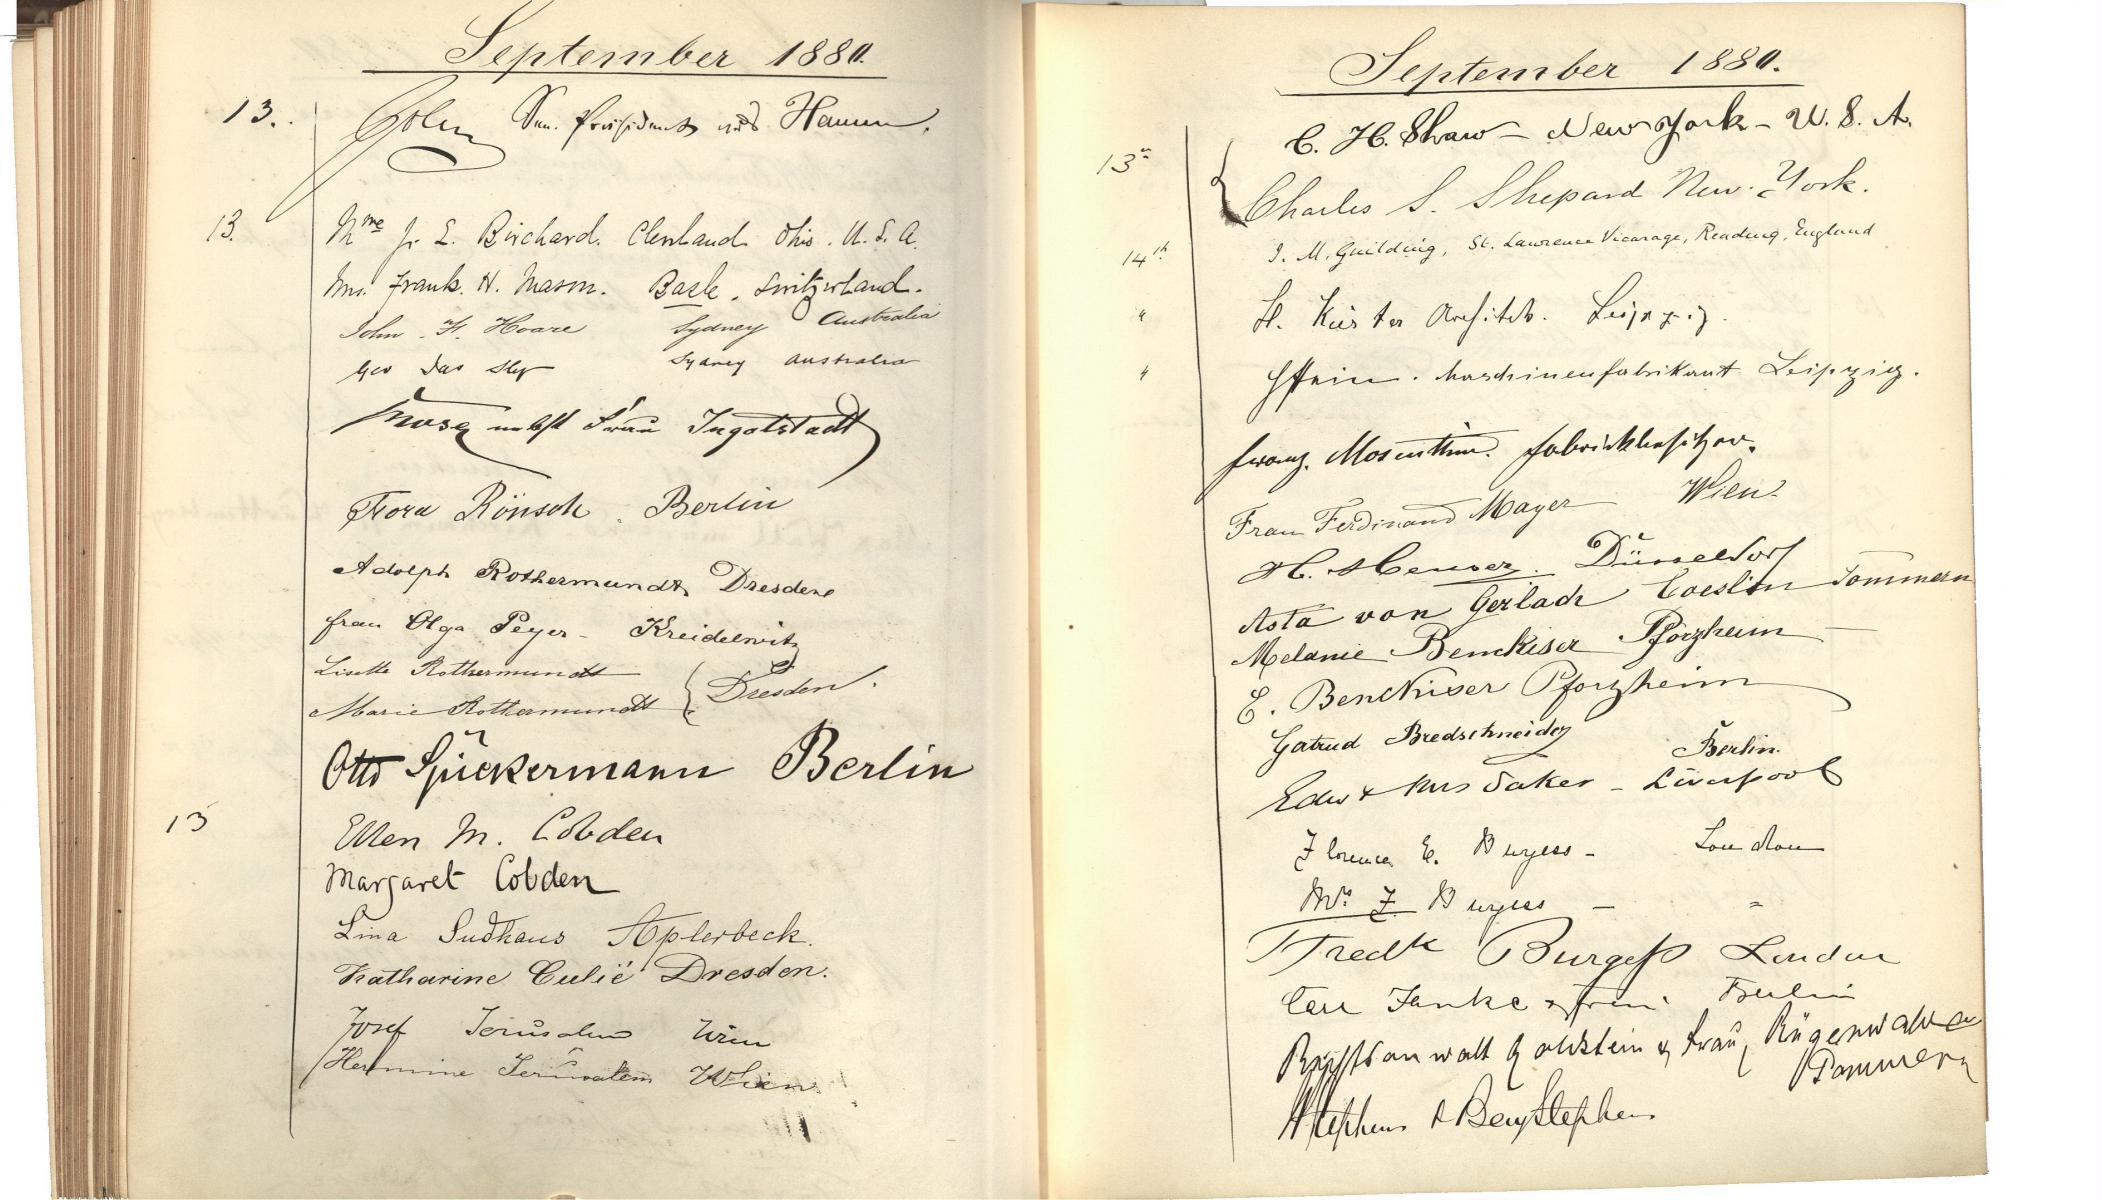 September 1880.
13. Präsident aus Hamm.
13. Mme Jr. E. Birchard. Cleveland Ohio. U.S.A.
Mrs. Frank. H. Mason. Basle. Switzerland.
John. F. Hoare Sydney Australia
Geo Sydney Australia
nebst Frau Ingolstadt
Flora Rönsch. Berlin
Adolph Rothermundt, Dresden
Frau Olga Peyer - Kreidelwitz
Lisette Rothermundt
Marie Rothermundt } Dresden.
Otto Spückermann Berlin
15 Ellen M. Cobden
Margaret Cobden
Lina Sudhaus Aplerbeck.
Katharine Culić Dresden.
Josef Jerusalem Wien
Hermine Jerusalem Wien
September 1880.
C. H. Shaw - New York - U. S. A.
13" { Charles S. Shepard New York.
14th J. M. Guilding, St. Lawrence Vicarage, Reading, England
" H. Küster Architekt. Leipzig.
" Maschinenfabrikant Leipzig.
Franz. Mosenthin. Fabrikbesitzer.
Frau Ferdinand Mayer Wien.
H. Heuser. Düsseldorf
Asta von Gerlach Coeslin Pommern
Melanie Benckiser Pforzheim
E. Benckiser Pforzheim
Gertrud Bredschneider Berlin.
Edw & Mrs Baker - Liverpool
Florence E. Burgess - London
Mrs. F. Burgess - "
Fredk Burgess London
Carl Janke & Frau Berlin
Rechtsanwalt Goldstein & Frau, Rügenwalde
Pommern
Stephens & Benj Stephens